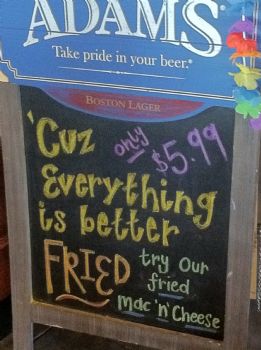 ADAMS®
Take pride in your beer.®
BOSTON LAGER
'Cuz only $5.99
Everything
is better
FRIED
try Our
fried
Mac 'n' Cheese